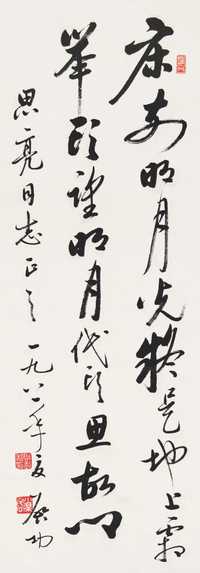 床前明月光疑是地上霜
举头望明月代头思故乡
思亮同志正之 一九八一年夏 启功